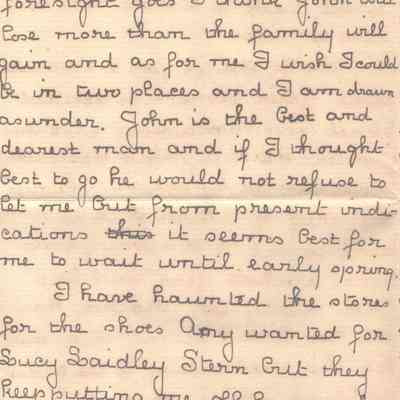 foresight goes I think John will
lose more than the family will
gain and as for me I wish I could
be in two places and I am drawn
asunder. John is the best and
dearest man and if I thought
best to go he would not refuse to
let me but from present indi-
cations this it seems best for
me to wait until early spring.
I have haunted the stores
for the shoes Amy wanted for
Lucy Laidley Stern but they
keep putting me off